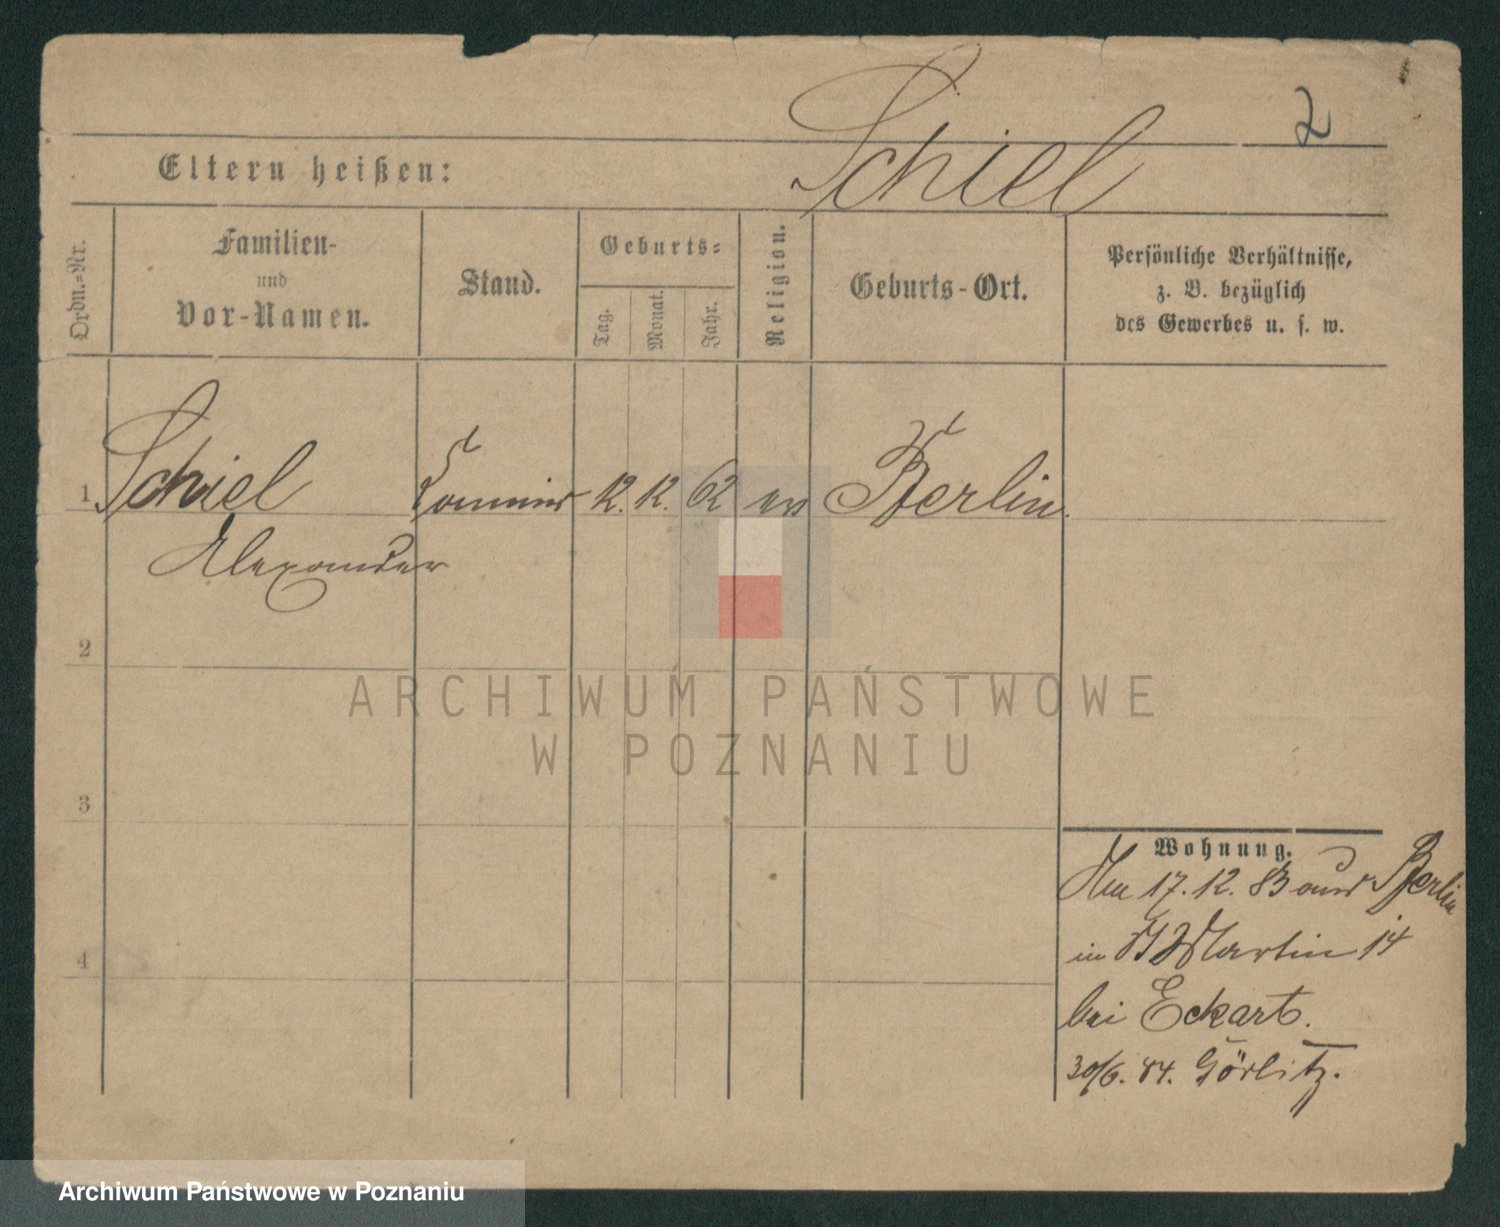 2
Schiel
Eltern heißen:
Ordn.=Nr.
Familien-
und
Vor-Namen.
Stand.
Geburts=
Tag.
Monat.
Jahr.
Religion.
Geburts-Ort.
Persönliche Verhältnisse,
z. B. bezüglich
des Gewerbes u. s. w.
1 Schiel Commis 12. 12. 62 ev Berlin.
Alexander
2
3
4
Wohnung.
Am 17. 12. 83 aus Berlin
in St Martin 14
bei Eckart.
30/6. 84. Görlitz.
ARCHIWUM PAŃSTWOWE
W POZNANIU
Archiwum Państwowe w Poznaniu